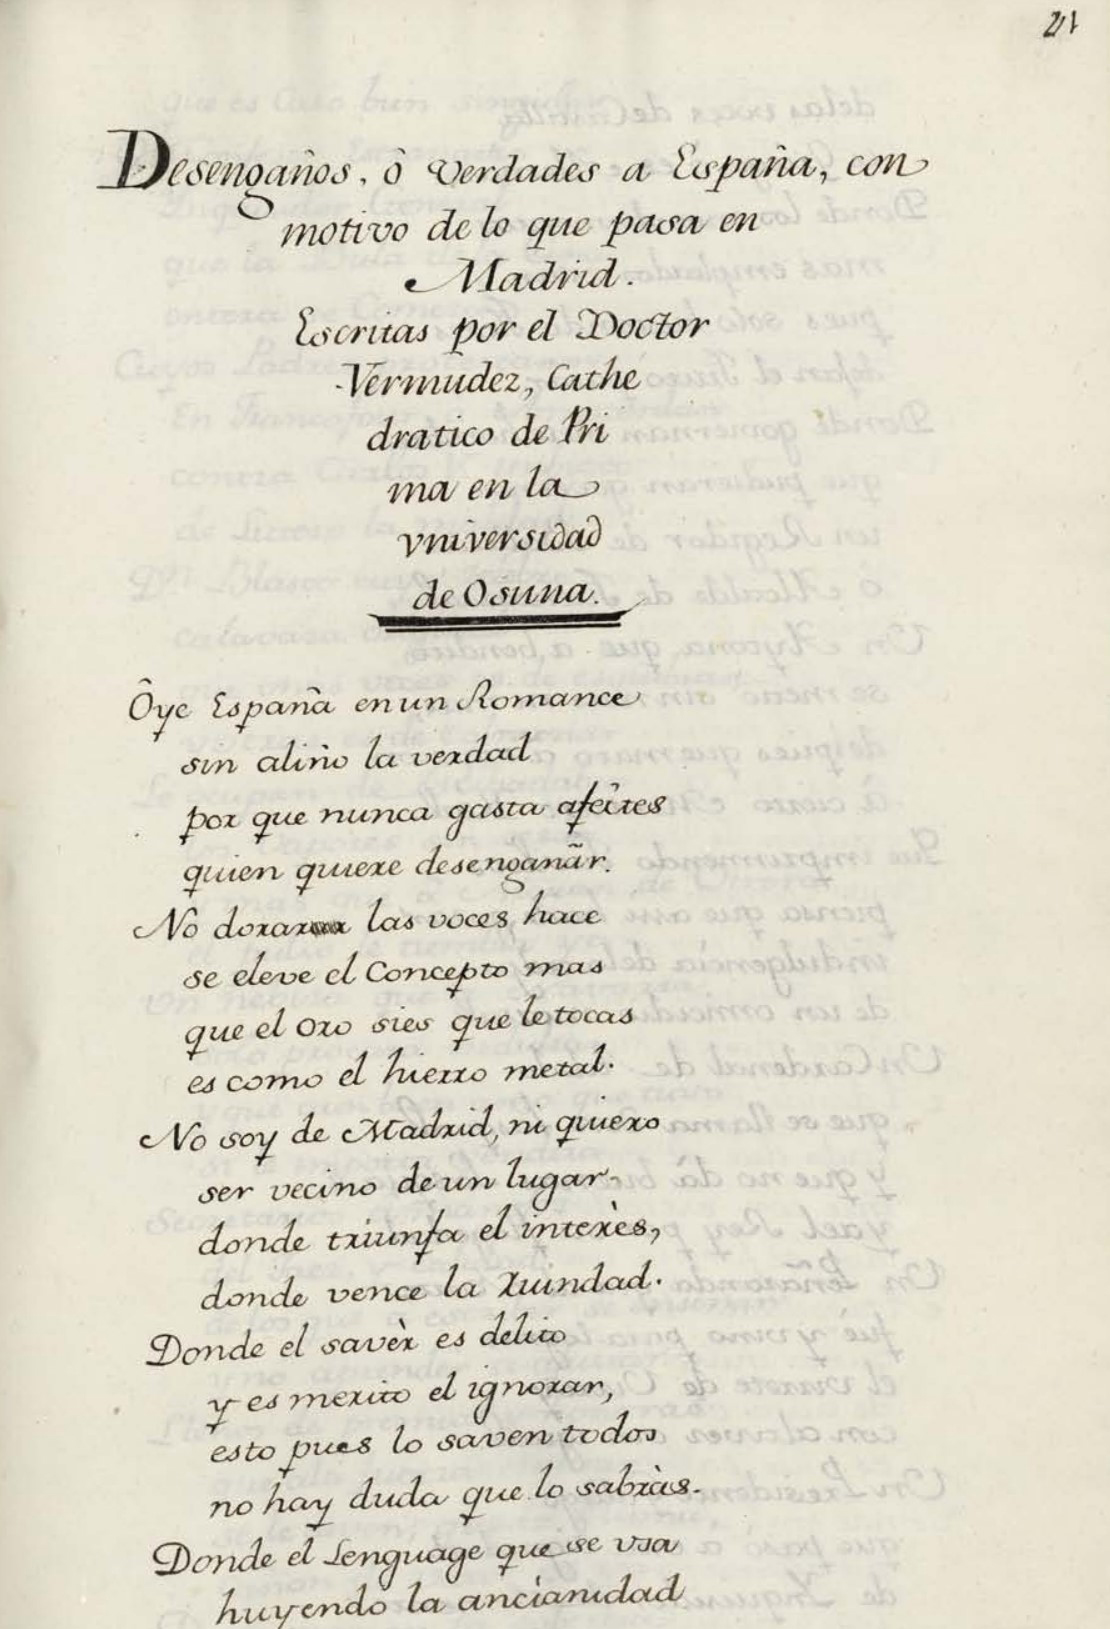 21
Desengaños, ô verdades a España, con
motivo de lo que pasa en
Madrid.
Escritas por el Doctor
Vermudez, Cathe
dratico de Pri
ma en la
vniversidad
de Osuna.
Ôye España en un Romance
sin aliño la verdad
por que nunca gasta afeites
quien quiere desengañar.
No dorar las voces hace
se eleve el Concepto mas
que el oro si es que le tocas
es como el hierro metal.
No soy de Madrid, ni quiero
ser vecino de un lugar,
donde triunfa el interès,
donde vence la ruindad.
Donde el savèr es delito
y es merito el ignorar,
esto pues lo saven todos
no hay duda que lo sabràs.
Donde el Lenguage que se vsa
huyendo la ancianidad